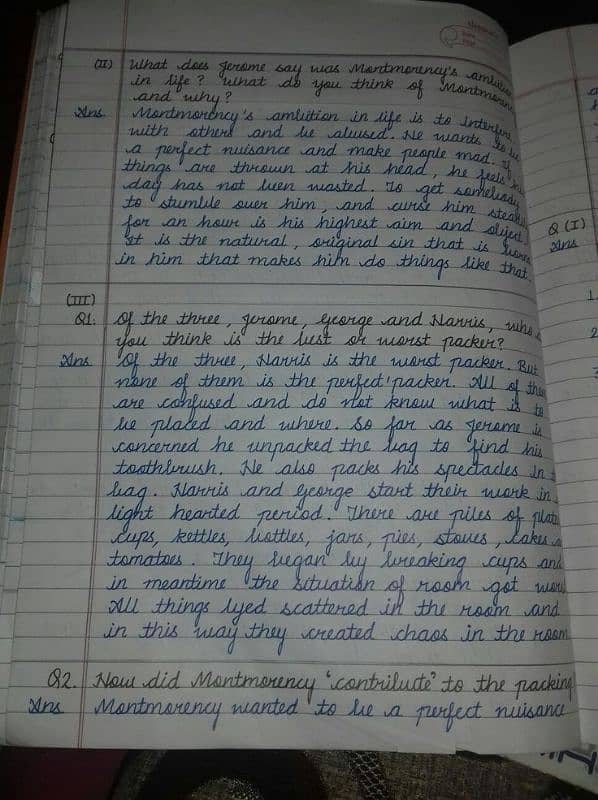 (II) What does Jerome say was Montmorency's ambition
in life? What do you think of Montmorency
and why?
Ans Montmorency's ambition in life is to Interfere
with others and be abused. He wants to be
a perfect nuisance and make people mad. If
things are thrown at his head, he feels his
day has not been wasted. To get somebody
to stumble over him, and curse him steadily
for an hour is his highest aim and object.
It is the natural, original sin that is born
in him that makes him do things like that.
(III)
Q1. Of the three, Jerome, George and Harris, who
you think is the best or worst packer?
Ans Of the three, Harris is the worst packer. But
none of them is the perfect packer. All of them
are confused and do not know what is to
be placed and where. So far as Jerome is
concerned he unpacked the bag to find his
toothbrush. He also packs his spectacles in
bag. Harris and George start their work in
light hearted period. There are piles of plates
cups, kettles, bottles, jars, pies, stoves, cakes
tomatoes. They began by breaking cups and
in meantime the situation of room got
All things lyed scattered in the room and
in this way they created chaos in the room
Q2. How did Montmorency 'contribute' to the packing
Ans Montmorency wanted to be a perfect nuisance
Q (I)
Ans
1.
2.